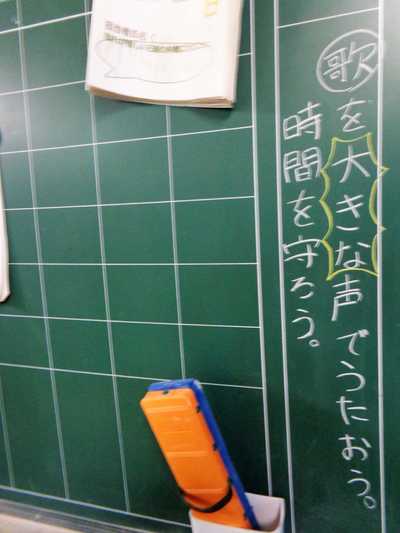 歌を大きな声でうたおう。
時間を守ろう。